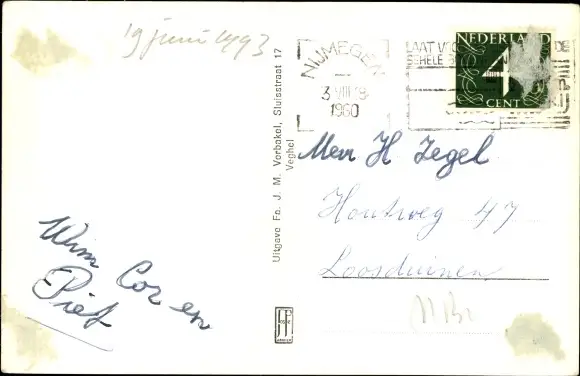 19 juni 1993
NIJMEGEN
3 VIII 19
1960
NEDERLAND
4
CENT
Uitgave Fa. J. M. Verbakel, Sluisstraat 17
Veghel
Mevr H Zegel
Houtweg 47
Loosduinen
Wim Cor en
Piet